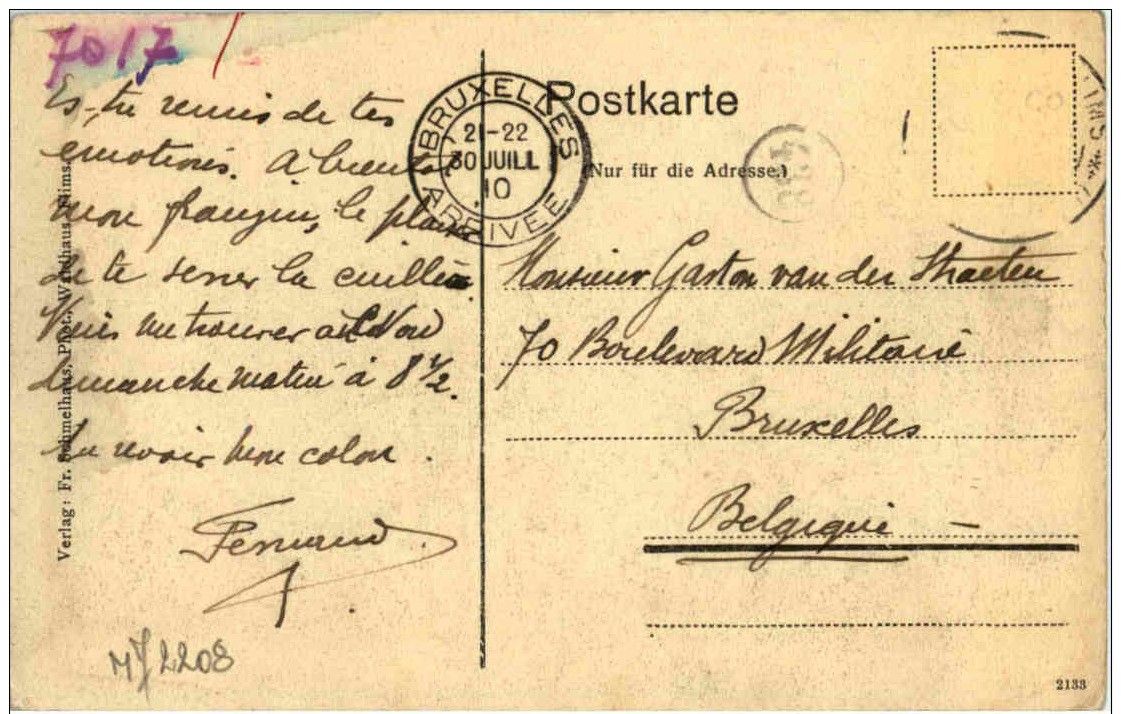 7017
Es-tu remis de tes
émotions. À bientôt
mon frangin, le plaisir
de te serrer la cuillère.
Viens me trouver au Nord
dimanche matin à 8 1/2.
Au revoir mon colon.
Fernand.
MJ 2208
Verlag: Fr. Schmelhaus, Phot. Waldhaus-Flims.
BRUXELLES
21-22
30 JUILL
10
ARRIVEE
Postkarte
(Nur für die Adresse.)
Monsieur Gaston van der Straeten
70 Boulevard Militaire
Bruxelles
Belgique
2133